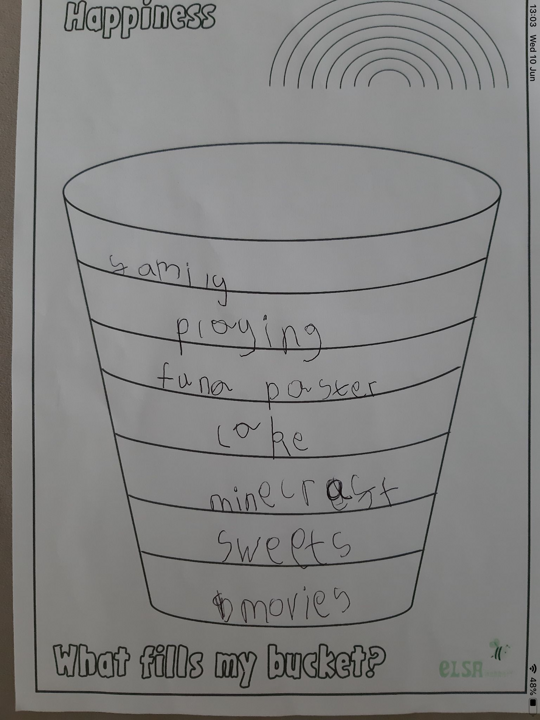 Happiness
family
playing
funa paster
cake
minecraft
sweets
movies
What fills my bucket?
ELSA
13:03 Wed 10 Jun
48%